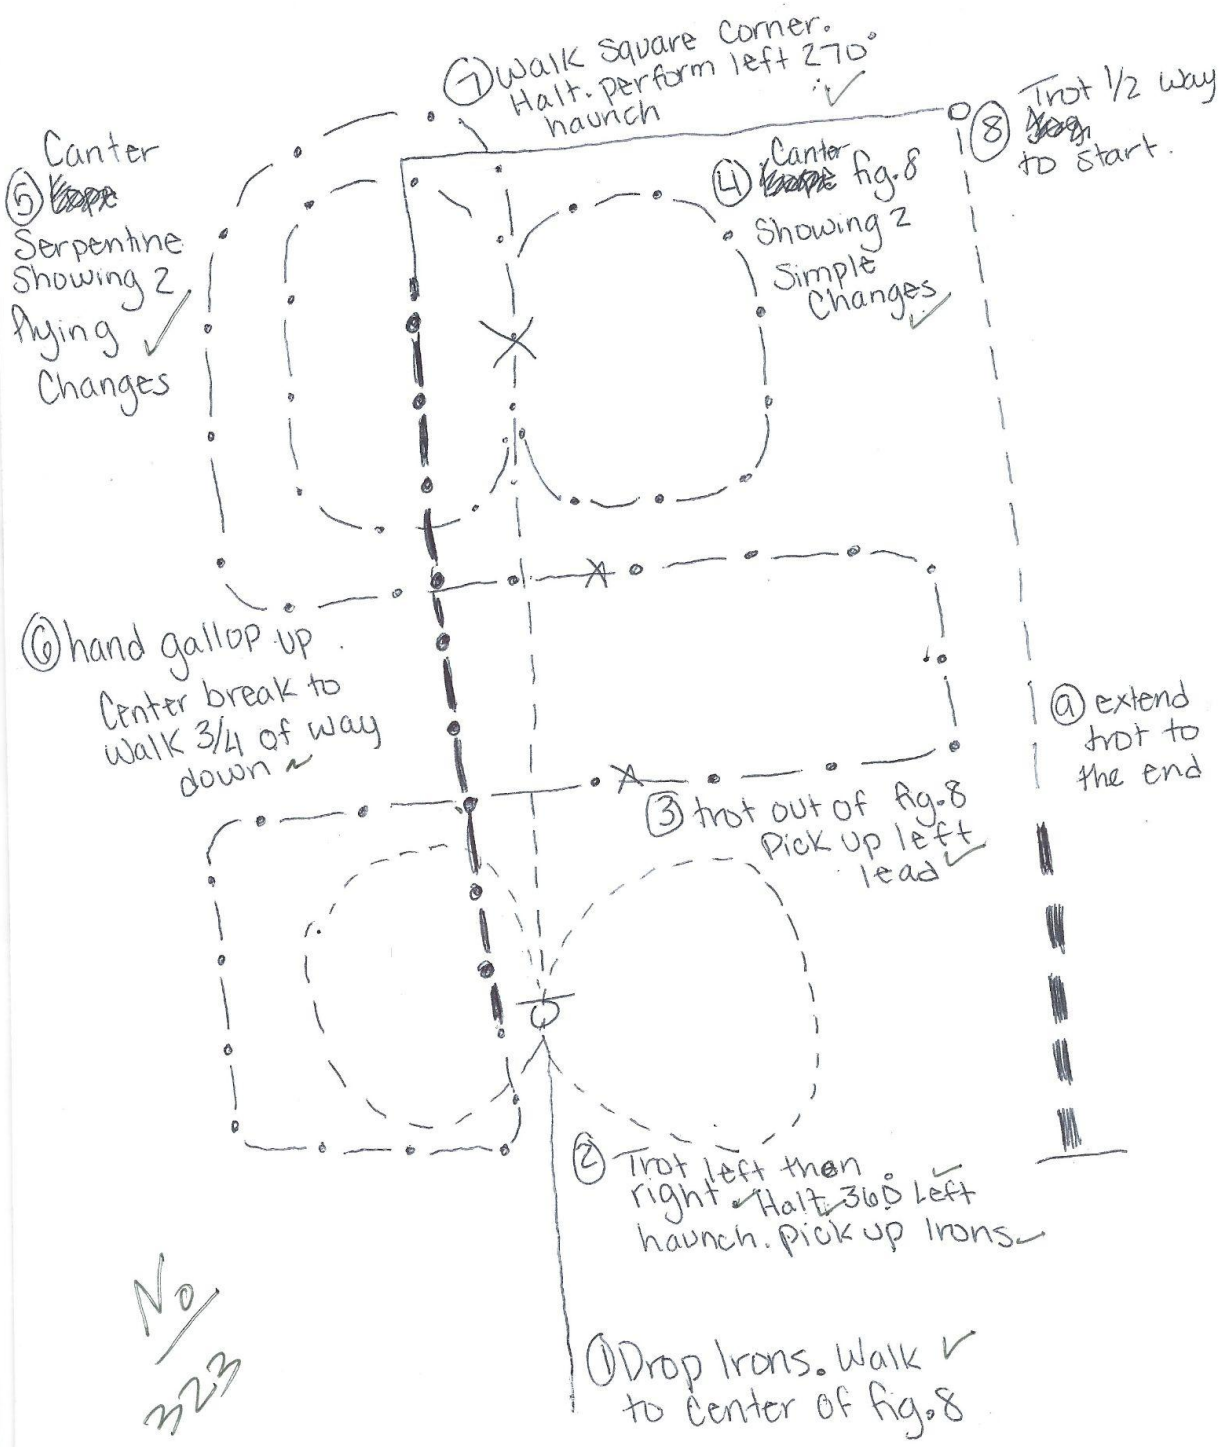 ⑦ Walk square corner.
Halt. perform left 270°
haunch
⑧ Trot 1/2 way
to start.
Canter
⑤
Serpentine
Showing 2
flying
Changes
Canter
④ fig.8
Showing 2
Simple
Changes
⑥ hand gallop up
Center break to
walk 3/4 of way
down
⑨ extend
trot to
the end
③ trot out of fig.8
Pick up left
lead
② Trot left then
right. Halt. 360° Left
haunch. pick up Irons
① Drop Irons. Walk
to center of fig.8
No
323